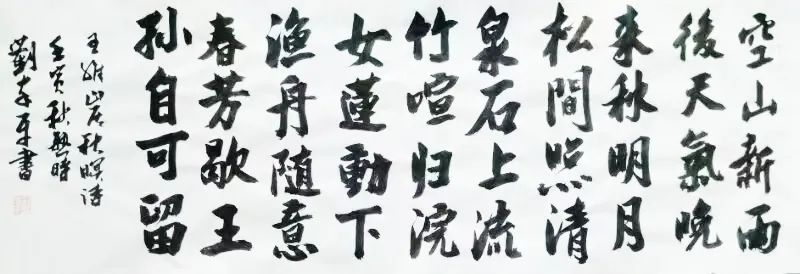 空山新雨
後天氣晚
来秋明月
松間照清
泉石上流
竹喧归浣
女蓮動下
渔舟随意
春芳歇王
孙自可留
王维山居秋暝诗
壬寅秋时
劉平書